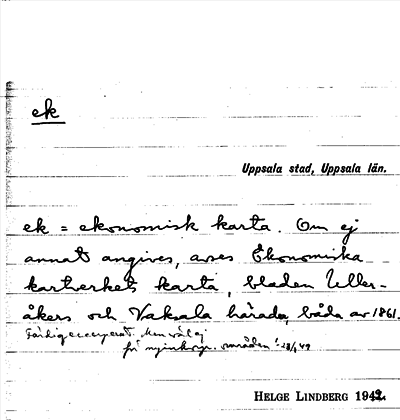 ek
Uppsala stad, Uppsala län.
ek = ekonomisk karta. Om ej
annat angives, avses Ekonomiska
kartverkets karta, bladen Uller-
åkers och Vaksala härader, båda av 1861.
Färdigexcerperat. Men väl ej
för nyinkorp. områden! 28/1 49
HELGE LINDBERG 1942.